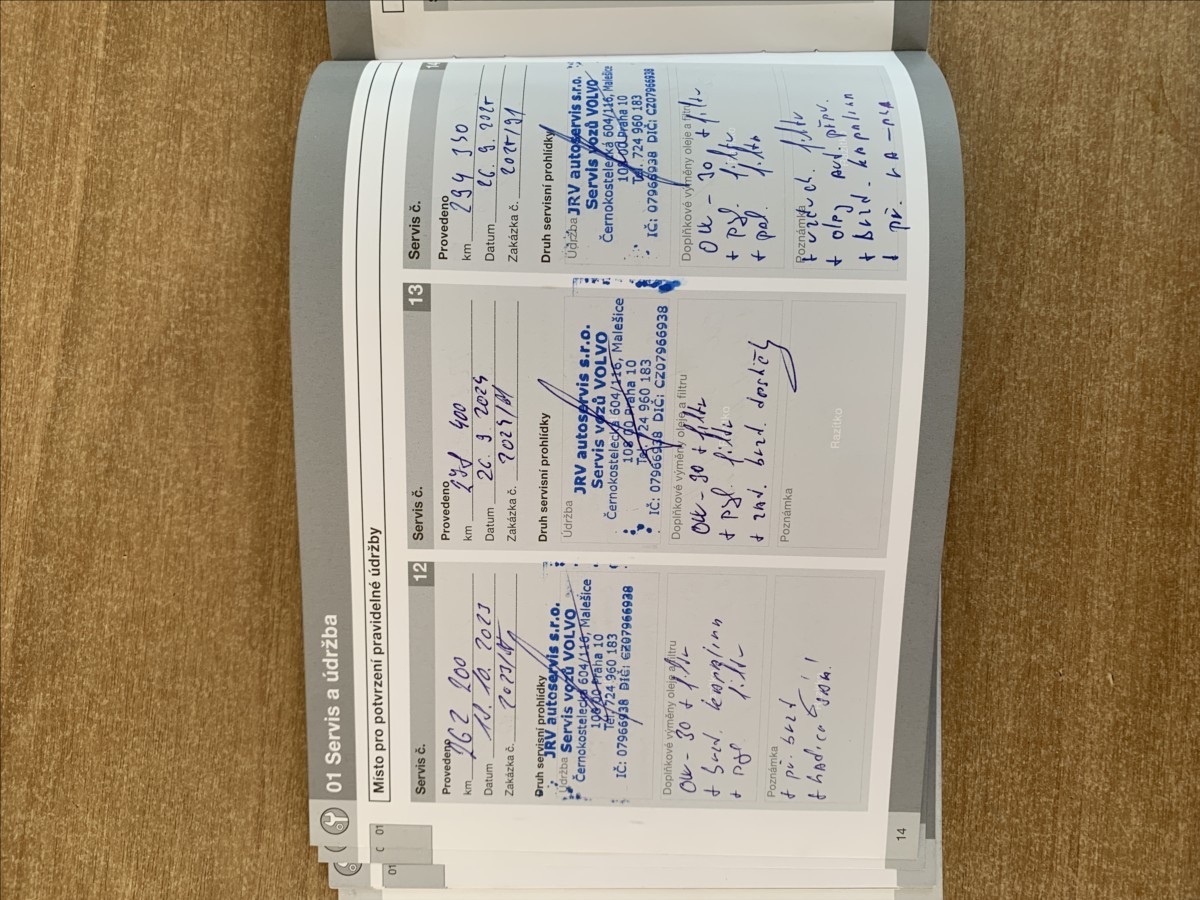 01 Servis a údržba
Místo pro potvrzení pravidelné údržby
Servis č. 12
Provedeno
km 262 200
Datum 19. 10. 2023
Zakázka č. 2023/
Druh servisní prohlídky
Údržba
JRV autoservis s.r.o.
Servis vozů VOLVO
Černokostelecká 604/116, Malešice
108 00 Praha 10
Tel. 724 960 183
IČ: 07966938 DIČ: CZ07966938
Doplňkové výměny oleje a filtru
0W-30 + filtr
+ brzd. kapalinu
+ pyl. filtr
Poznámka
+ př. brzd
+ hadice
Servis č. 13
Provedeno
km 278 400
Datum 26. 9. 2024
Zakázka č. 2024/
Druh servisní prohlídky
Údržba
JRV autoservis s.r.o.
Servis vozů VOLVO
Černokostelecká 604/116, Malešice
108 00 Praha 10
Tel. 724 960 183
IČ: 07966938 DIČ: CZ07966938
Doplňkové výměny oleje a filtru
0W-30 + filtr
+ pyl. filtr
+ zad. brzd. destičky
Poznámka
Razítko
Servis č. 14
Provedeno
km 294 340
Datum 26. 9. 2025
Zakázka č. 2025/91
Druh servisní prohlídky
Údržba
JRV autoservis s.r.o.
Servis vozů VOLVO
Černokostelecká 604/116, Malešice
108 00 Praha 10
Tel. 724 960 183
IČ: 07966938 DIČ: CZ07966938
Doplňkové výměny oleje a filtru
0W-30 + filtr
+ pyl. filtr
+ pal. filtr
Poznámka
+ vzduch. filtr
+ olej aut. přev.
+ brzd. kapalina
+ př.
14
C 01
01